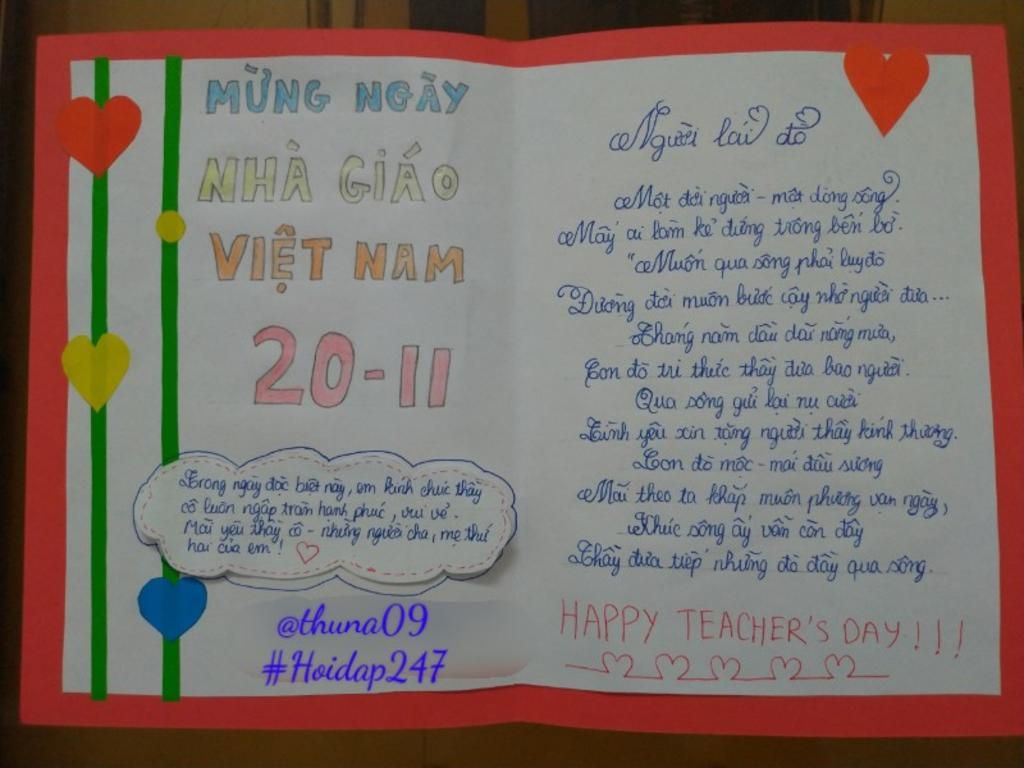 MỪNG NGÀY
NHÀ GIÁO
VIỆT NAM
20-11
Trong ngày đặc biệt này, em kính chúc thầy
cô luôn ngập tràn hạnh phúc, vui vẻ.
Mãi yêu thầy cô - những người cha, mẹ thứ
hai của em!
@thuna09
#Hoidap247
Người lái đò
Một đời người - một dòng sông.
Mấy ai làm kẻ đứng trông bến bờ.
"Muốn qua sông phải luỵ đò
Đường đời muôn bước cậy nhờ người đưa...
Tháng năm dầu dãi nắng mưa,
Con đò tri thức thầy đưa bao người.
Qua sông gửi lại nụ cười
Tình yêu xin tặng người thầy kính thương.
Con đò mộc - mái đầu sương
Mãi theo ta khắp muôn phương vạn ngày,
Khúc sông ấy vẫn còn đây
Thầy đưa tiếp những đò đầy qua sông.
HAPPY TEACHER'S DAY!!!